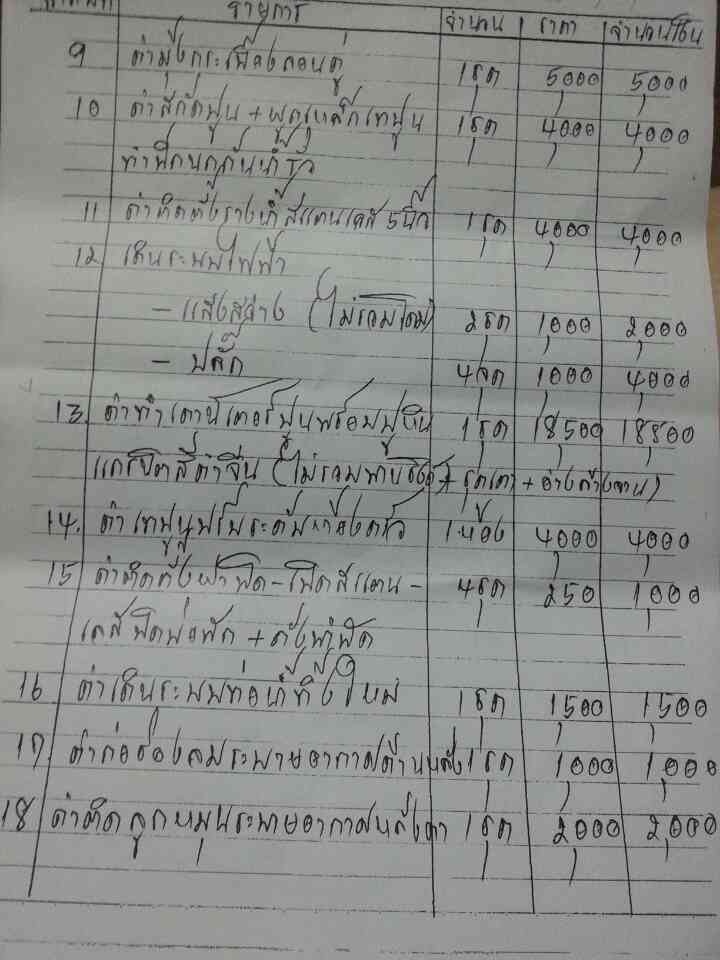 รายการ จำนวน ราคา จำนวนเงิน
9 ค่ามุงกระเบื้องลอนคู่ 1ชุด 5000 5000
10 ค่าสกัดปูน + ผูกเหล็กเทปูน 1ชุด 4000 4000
ทำปีกนกกันน้ำรั่ว
11 ค่าติดตั้งรางน้ำสแตนเลส 5นิ้ว 1ชุด 4000 4000
12 เดินระบบไฟฟ้า
- แสงสว่าง (ไม่รวมโคม) 2ชุด 1000 2000
- ปลั๊ก 4จุด 1000 4000
13. ค่าทำเคาน์เตอร์ปูนพร้อมปูหิน 1ชุด 18500 18800
แกรนิตสีดำจีน (ไม่รวม + ชุดเตา + อ่างล้างจาน)
14. ค่าเทปูนปรับระดับห้องครัว 1ห้อง 4000 4000
15 ค่าติดตั้งฝาปิด-เปิดสแตน- 4ชุด 250 1000
เลสปิดบ่อพัก +
16 ค่าเดินระบบท่อน้ำทิ้งใหม่ 1ชุด 1500 1500
17. ค่าก่อช่องลมระบายอากาศด้านหลัง 1ชุด 1000 1,000
18 ค่าติดลูกหมุนระบายอากาศหลังคา 1ชุด 2000 2,000